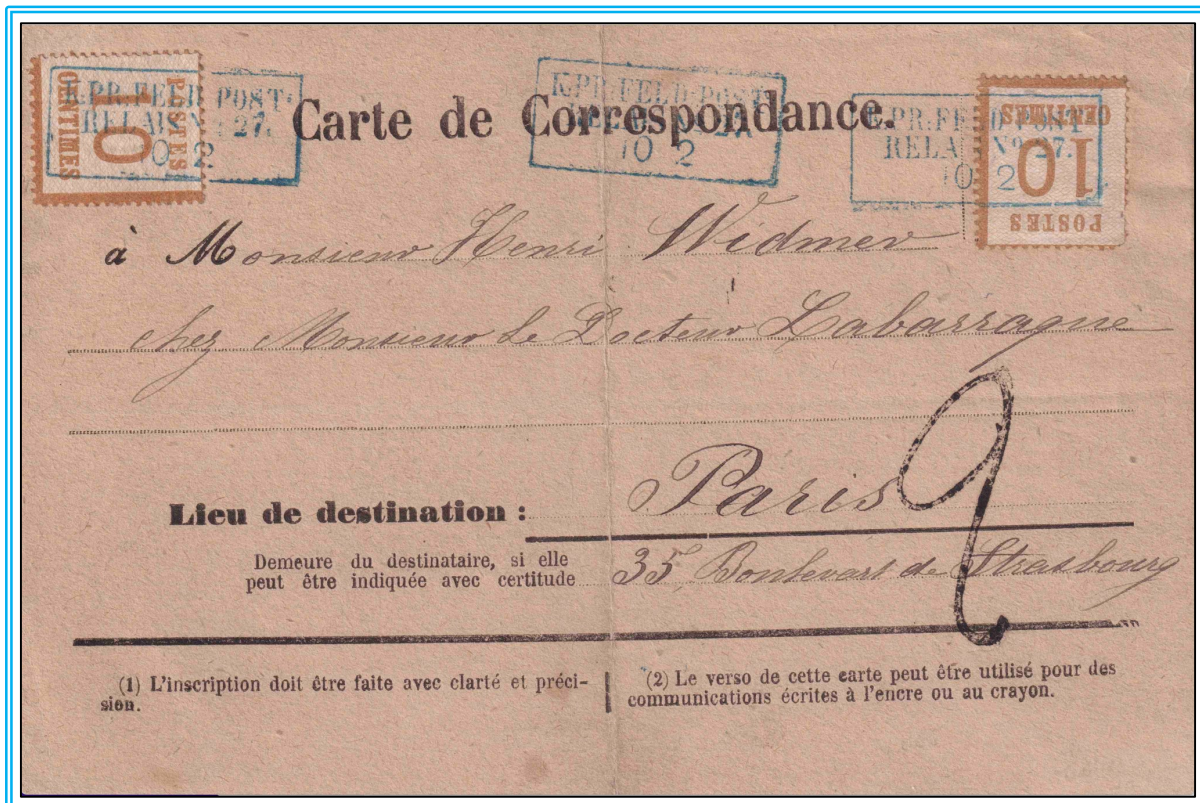 POSTES
10
CENTIMES
K.PR.FELD-POST-
RELAIS No 27.
10 2
K.PR.FELD-POST
10 2
K.PR.FELD-POST
RELAIS No 27.
10 2
CENTIMES
10
POSTES
Carte de Correspondance.
à Monsieur Henri Widmer
chez Monsieur Le Docteur Labarragne
Lieu de destination : Paris
2
Demeure du destinataire, si elle
peut être indiquée avec certitude 35 Boulevart de Strasbourg
(1) L'inscription doit être faite avec clarté et préci-
sion.
(2) Le verso de cette carte peut être utilisé pour des
communications écrites à l'encre ou au crayon.